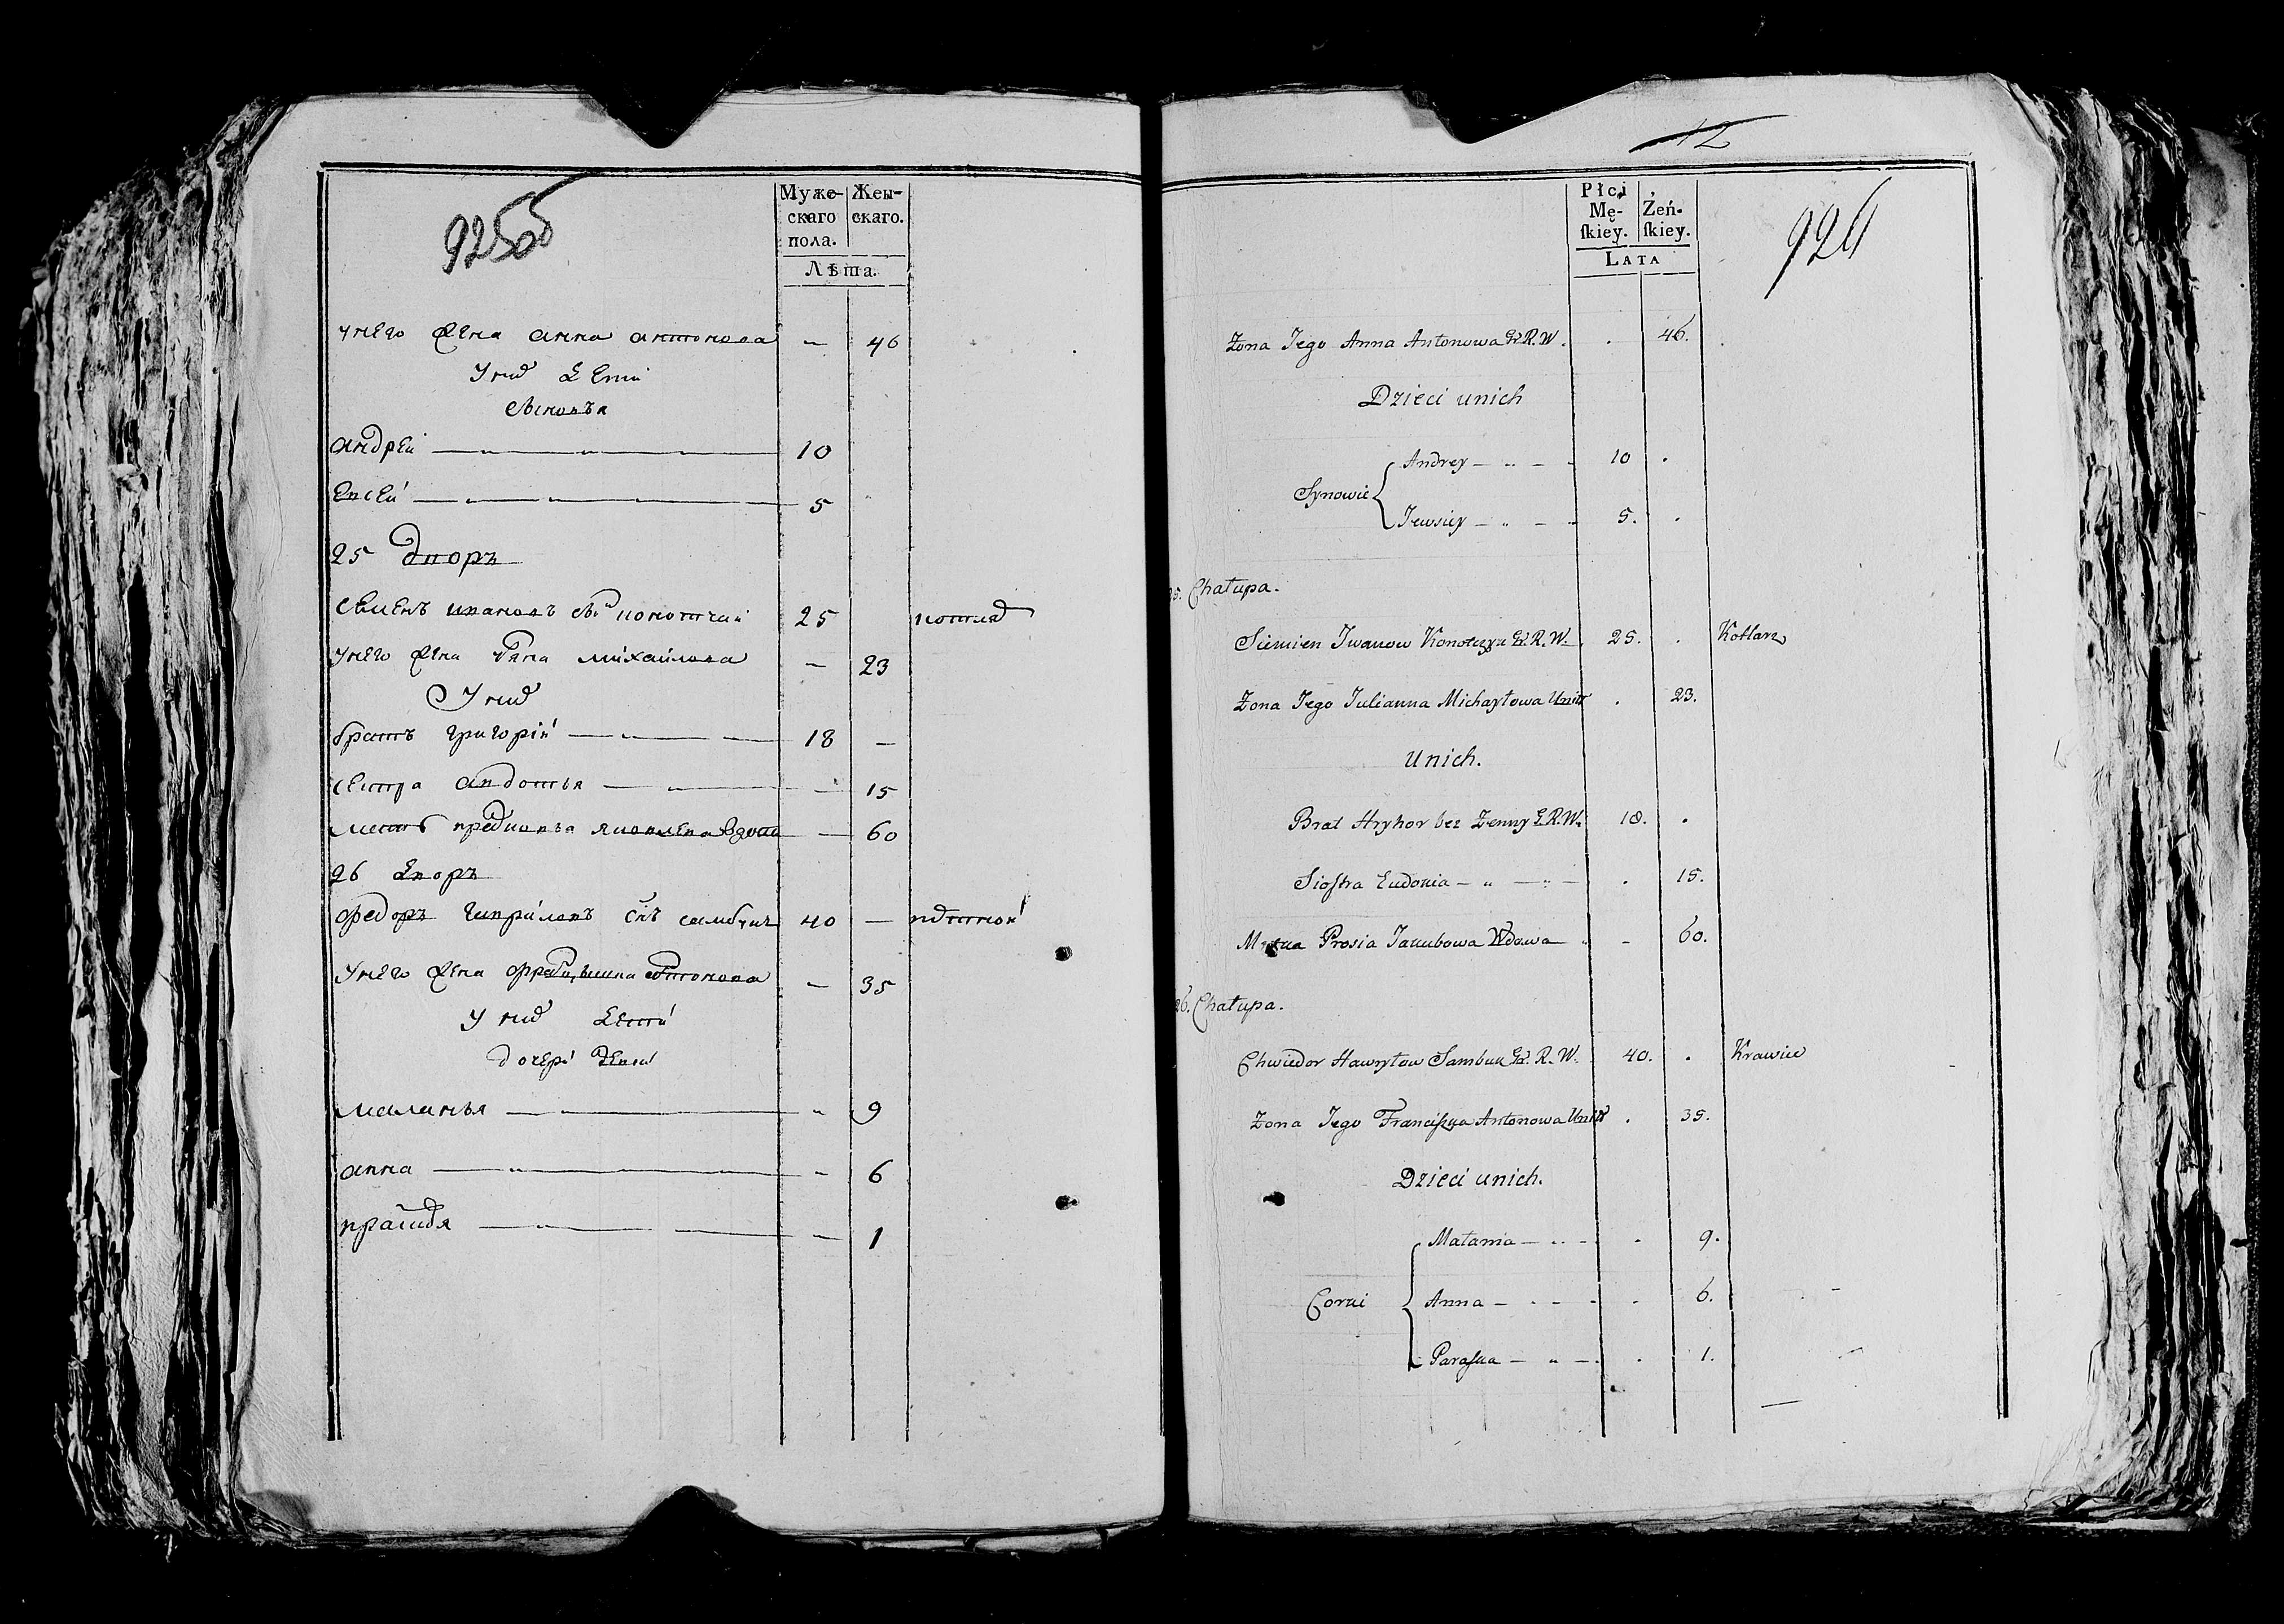 925об
Муже-
скаго
пола.
Жен-
скаго.
Лѣта.
унего жена анна антонова — 46
У них дети
сыновья
андрей — 10
евсей — 5
25 дворъ
семенъ ивановъ сынъ 25
унего жена михайлова — 23
У них
братъ григорій — 18 —
сестра авдотья — 15
мать яковлева вдова — 60
26 дворъ
федоръ гавриловъ снъ самбукъ 40 —
Унего жена антонова — 35
У них дети
дочери
маланья — 9
анна — 6
— 1
12
926
Płci
Mę-
ſkiey.
Żeń-
ſkiey.
LATA
Zona Jego Anna Antonowa G.R.W. . 46.
Dzieci unich
Andrey — 10 .
Synowie
Jewsiey — 5. .
25. Chałupa.
Siemien Iwanow G.R.W. 25. . Kotlarz
Zona Jego Julianna Michayłowa Unitt . 23.
Unich.
Brat Hryhor bez Zenny G.R.W. 18. .
Siostra Eudokia — . 15.
Matka Prosia Jakubowa Wdowa — 60.
26. Chałupa.
Chwiedor Hawryłow Sambuk G.R.W. 40. . Krawiec
Zona Jego Franciſzka Antonowa Unitt . 35.
Dzieci unich.
Małania — . 9.
Corki
Anna — . 6.
Paraſka — . 1.